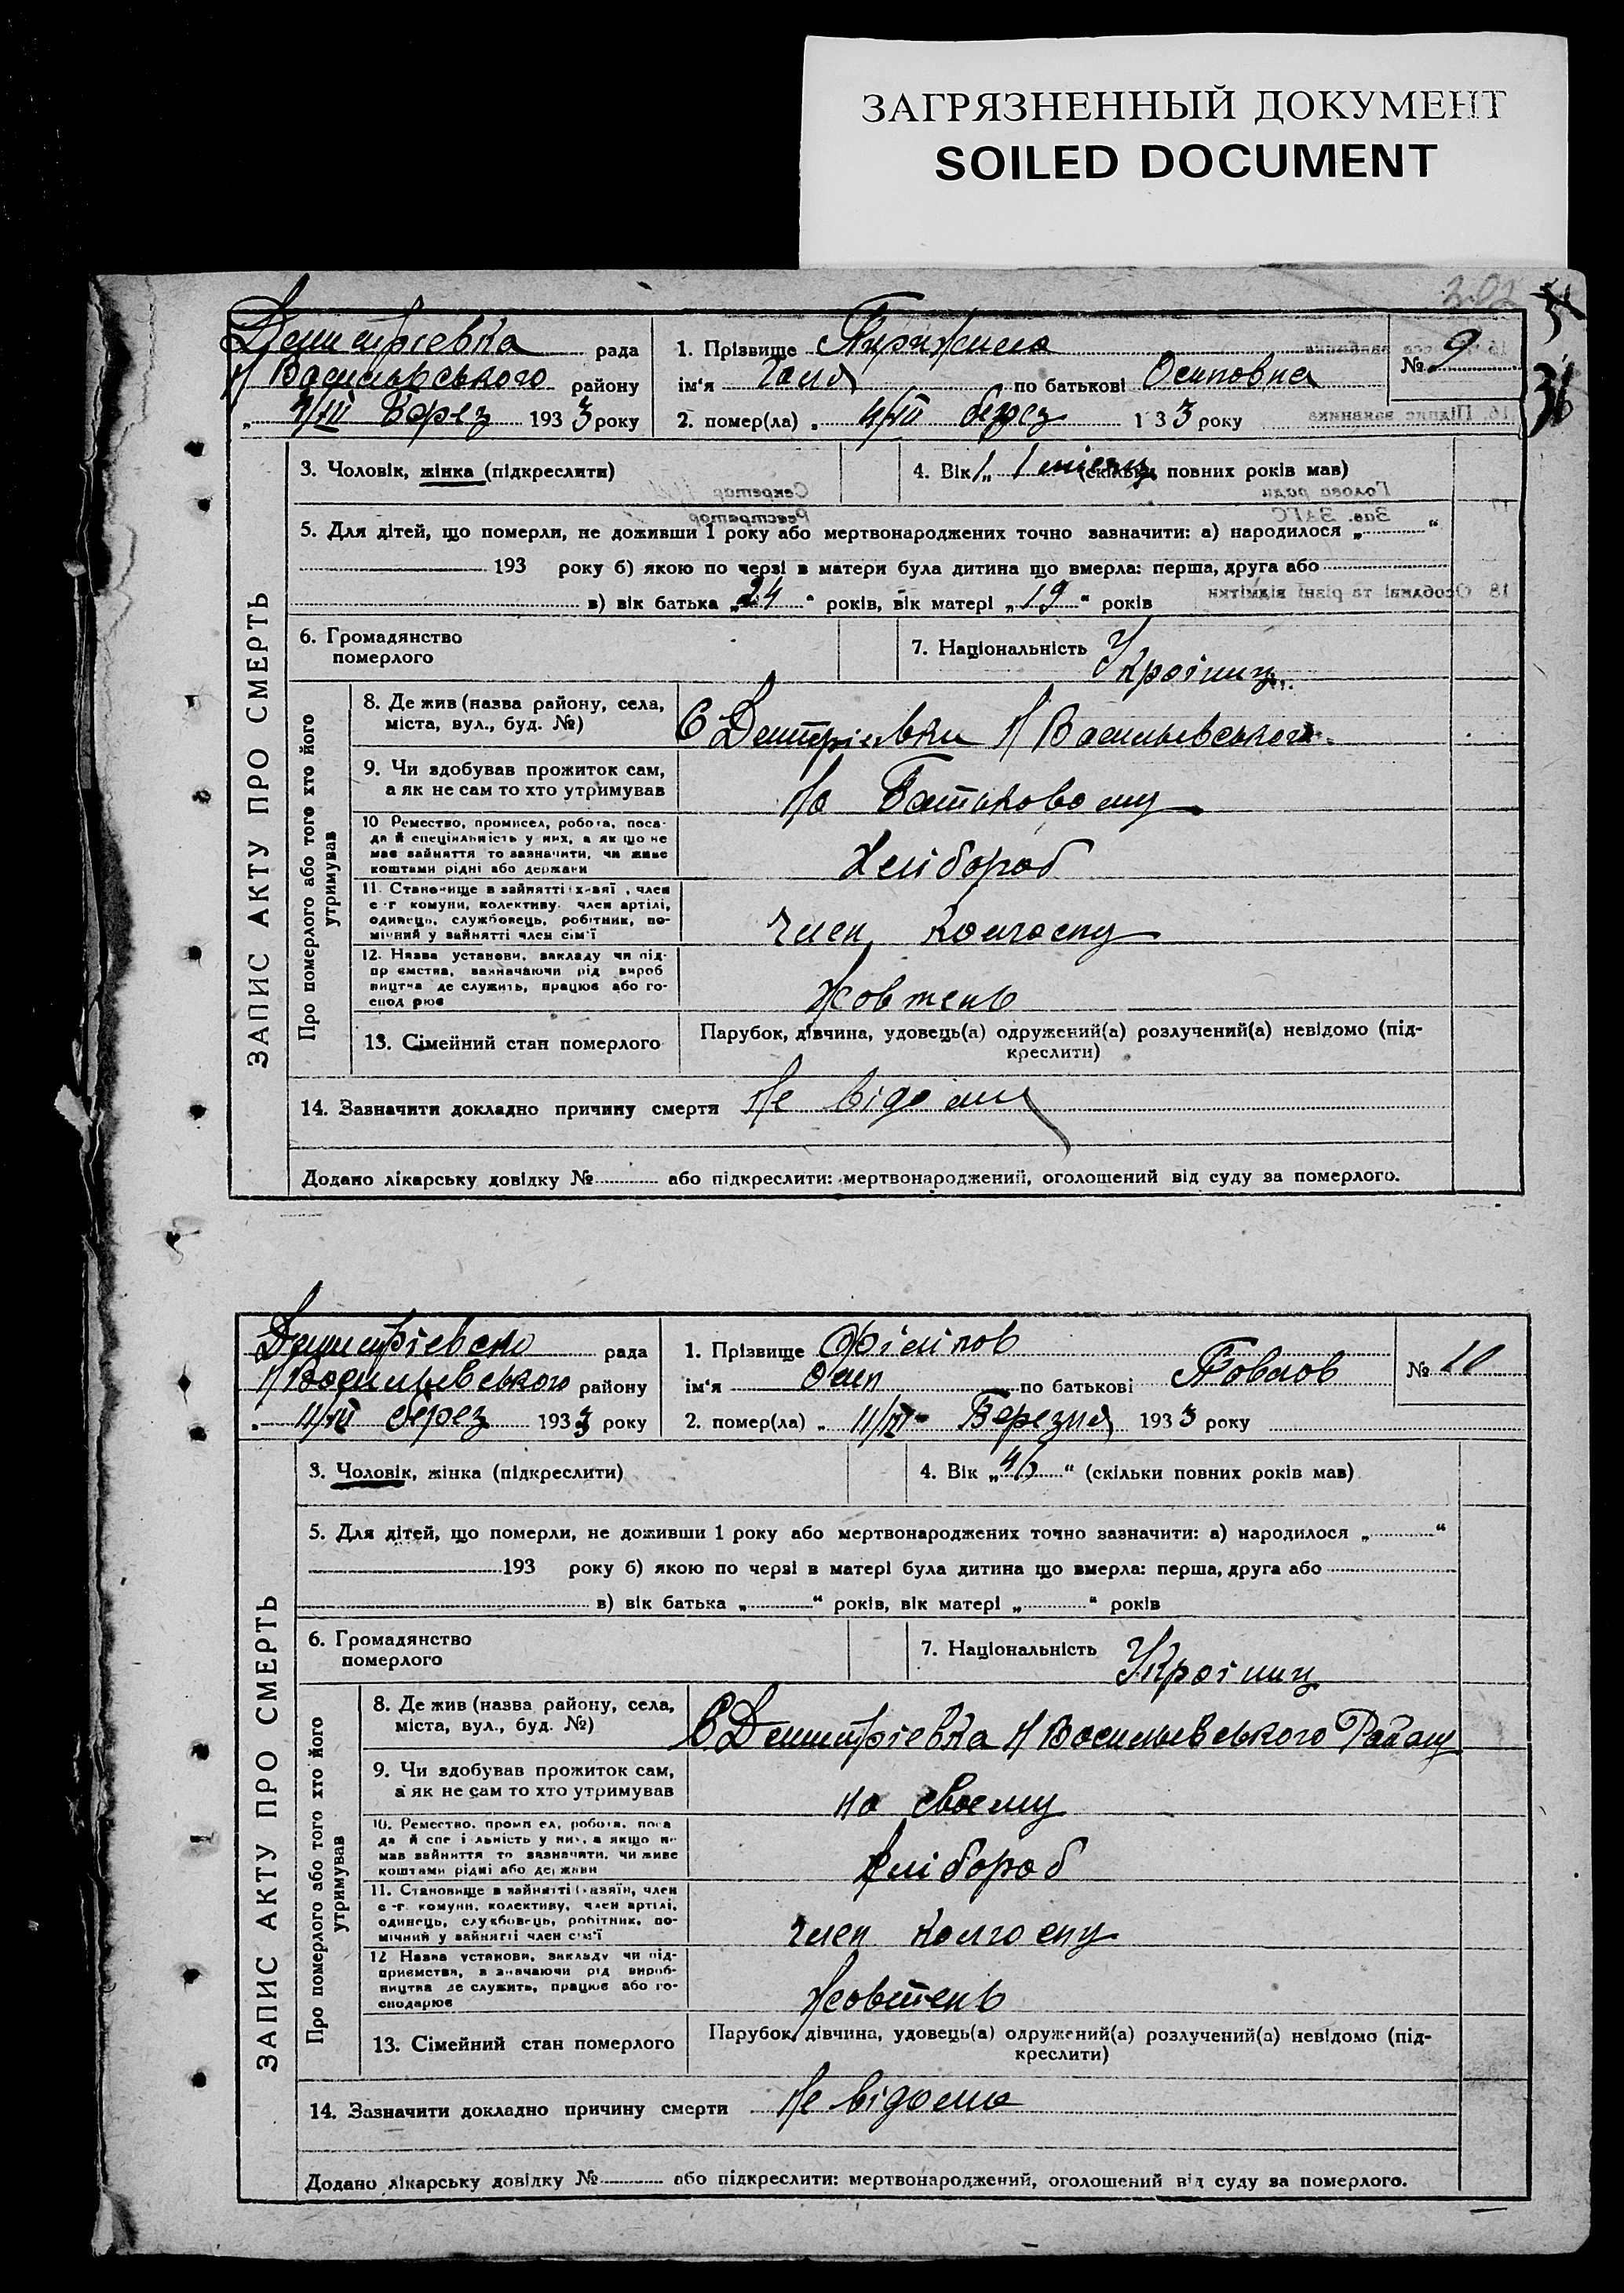 ЗАГРЯЗНЕННЫЙ ДОКУМЕНТ
SOILED DOCUMENT
202
36
ЗАПИС АКТУ ПРО СМЕРТЬ
Дмитрієвка рада
Н Васильевського району
4/III Берез 1933 року
1. Прізвище
ім'я Галя по батькові Осиповна
2. помер(ла) „ 4/III берез 1 33 року
№ 9
3. Чоловік, жінка (підкреслити)
4. Вік „ 1 місяц (скільки повних років мав)
5. Для дітей, що померли, не доживши 1 року або мертвонароджених точно зазначити: а) народилося „ “
193 року б) якою по черзі в матери була дитина що вмерла: перша, друга або
в) вік батька „ 24 “ років, вік матері „ 19 “ років
6. Громадянство
померлого
7. Національність Украінец
Про померлого або того хто його
утримував
8. Де жив (назва району, села,
міста, вул., буд. №)
С Дмитрієвки Н Васильевського
9. Чи здобував прожиток сам,
а як не сам то хто утримував
На Батьковому
10 Ремество, промисел, робота, поса-
да й спеціяльність у них, а як що не
має зайняття то зазначити, чи живе
коштами рідні або держави
Хлібороб
11. Становище в зайнятті х-зяї , член
с -г комуни, колективу. член артілі,
одинець, службовець, робітник, по-
мічний у зайнятті член сім'ї
член колгоспу
12. Назва установи, закладу чи під-
пр ємства, зазначаючи рід вироб
ництва де служить, працює або го-
спод рює
Жовтень
13. Сімейний стан померлого
Парубок, дівчина, удовець(а) одружений(а) розлучений(а) невідомо (під-
креслити)
14. Зазначити докладно причину смерти Не відому
Додано лікарську довідку № або підкреслити: мертвонароджений, оголошений від суду за померлого.
ЗАПИС АКТУ ПРО СМЕРТЬ
Дмитрієвска рада
Н Васильевського району
11/III берез 1933 року
1. Прізвище Філіпов
ім'я по батькові Павлов
2. помер(ла) „ 11/III Березня 1933 року
№ 10
3. Чоловік, жінка (підкреслити)
4. Вік „ “ (скільки повних років мав)
5. Для дітей, що померли, не доживши 1 року або мертвонароджених точно зазначити: а) народилося „ “
193 року б) якою по черзі в матері була дитина що вмерла: перша, друга або
в) вік батька „ “ років, вік матері „ “ років
6. Громадянство
померлого
7. Національність Украінец
Про померлого або того хто його
утримував
8. Де жив (назва району, села,
міста, вул., буд. №)
С Дмитрієвка Н Васильевського Району
9. Чи здобував прожиток сам,
а як не сам то хто утримував
на своему
10. Ремество, проми ел, робота, поса
да й спе і льність у них, а якщо не
має зайняття то зазначити, чи живе
коштами рідні або держави
Хлібороб
11. Становище в зайнятті хазяїн, член
с -г. комуни, колективу, член артілі,
одинець, службовець, робітник, по-
мічний у зайнятті член сім'ї
член колгоспу
12 Назва установи, закладу чи під-
приємства, зазначаючи рід вироб-
ництва де служить, працює або го-
сподарює
Жовтень
13. Сімейний стан померлого
Парубок, дівчина, удовець(а) одружений(а) розлучений(а) невідомо (під-
креслити)
14. Зазначити докладно причину смерти Не відома
Додано лікарську довідку № або підкреслити: мертвонароджений, оголошений від суду за померлого.